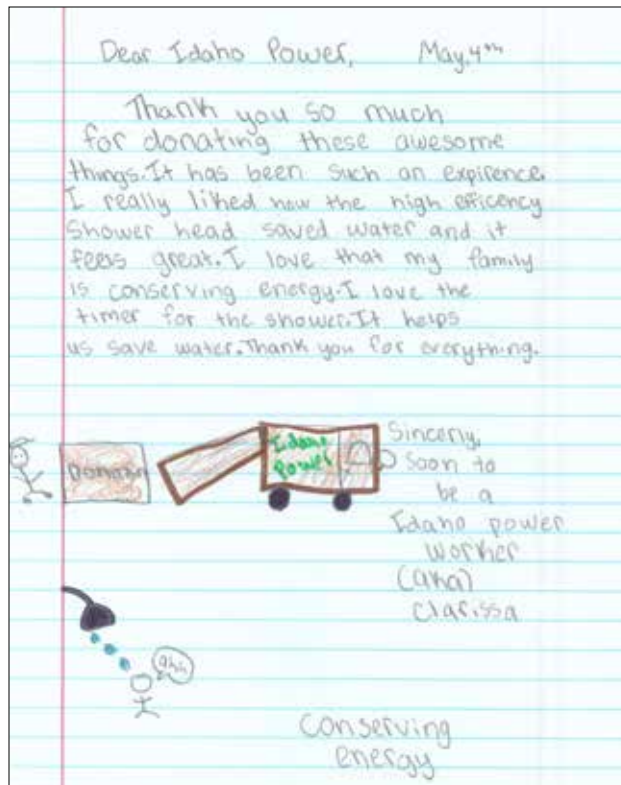 Dear Idaho Power, May, 4th
Thank you so much
for donating these awesome
things. It has been such an expirence.
I really liked how the high efficency
Shower head saved water and it
feels great. I love that my family
is conserving energy. I love the
timer for the shower. It helps
us save water. Thank you for everything.
Donation
Idaho
Power
Sincerly,
Soon to
be a
Idaho power
worker
(aka)
Clarissa
ahh
Conserving
energy